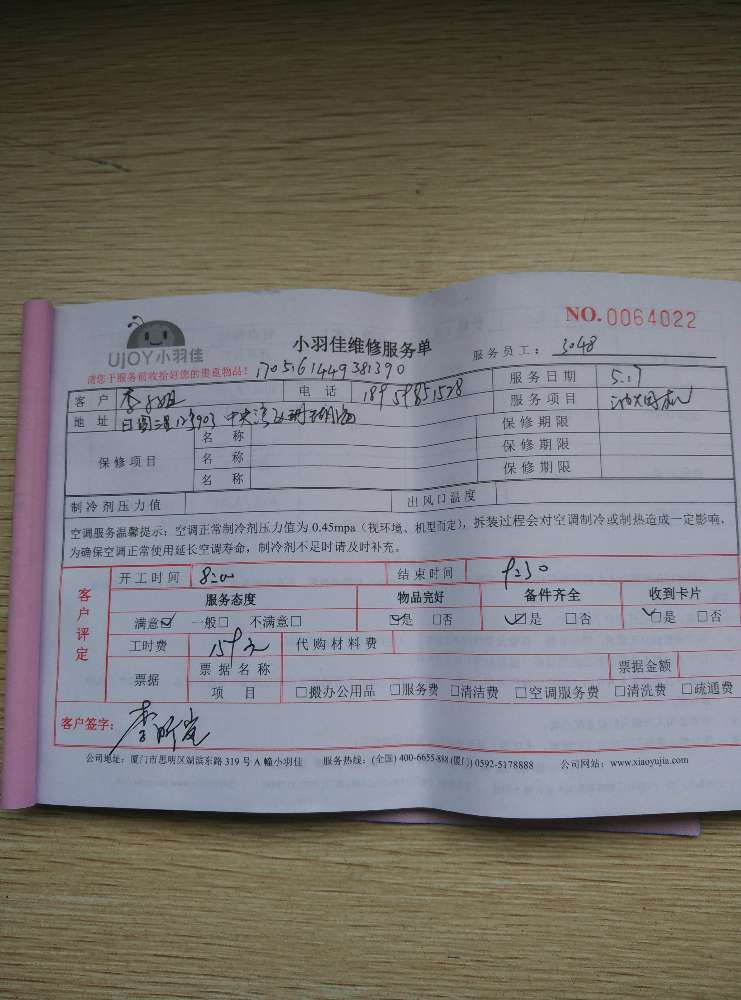 NO.0064022
UJOY小羽佳
小羽佳维修服务单
服务员工: 3048
请您于服务前收拾好您的贵重物品! 1705161449381390
客户 李小姐 电话 服务日期 5.17
地址 服务项目
保修项目 名称 保修期限
名称 保修期限
名称 保修期限
制冷剂压力值 出风口温度
空调服务温馨提示: 空调正常制冷剂压力值为 0.45mpa (视环境、机型而定), 拆装过程会对空调制冷或制热造成一定影响,
为确保空调正常使用延长空调寿命, 制冷剂不足时请及时补充。
客户评定
开工时间 8:00 结束时间 9:30
服务态度 物品完好 备件齐全 收到卡片
满意☑ 一般□ 不满意□ ☑是 □否 ☑是 □否 ☑是 □否
工时费 159元 代购材料费
票据 票据名称 票据金额
项目 □搬办公用品 □服务费 □清洁费 □空调服务费 □清洗费 □疏通费
客户签字: 李
公司地址: 厦门市思明区湖滨东路 319 号 A 幢小羽佳 服务热线: (全国) 400-6655-888 (厦门) 0592-5178888 公司网站: www.xiaoyujia.com